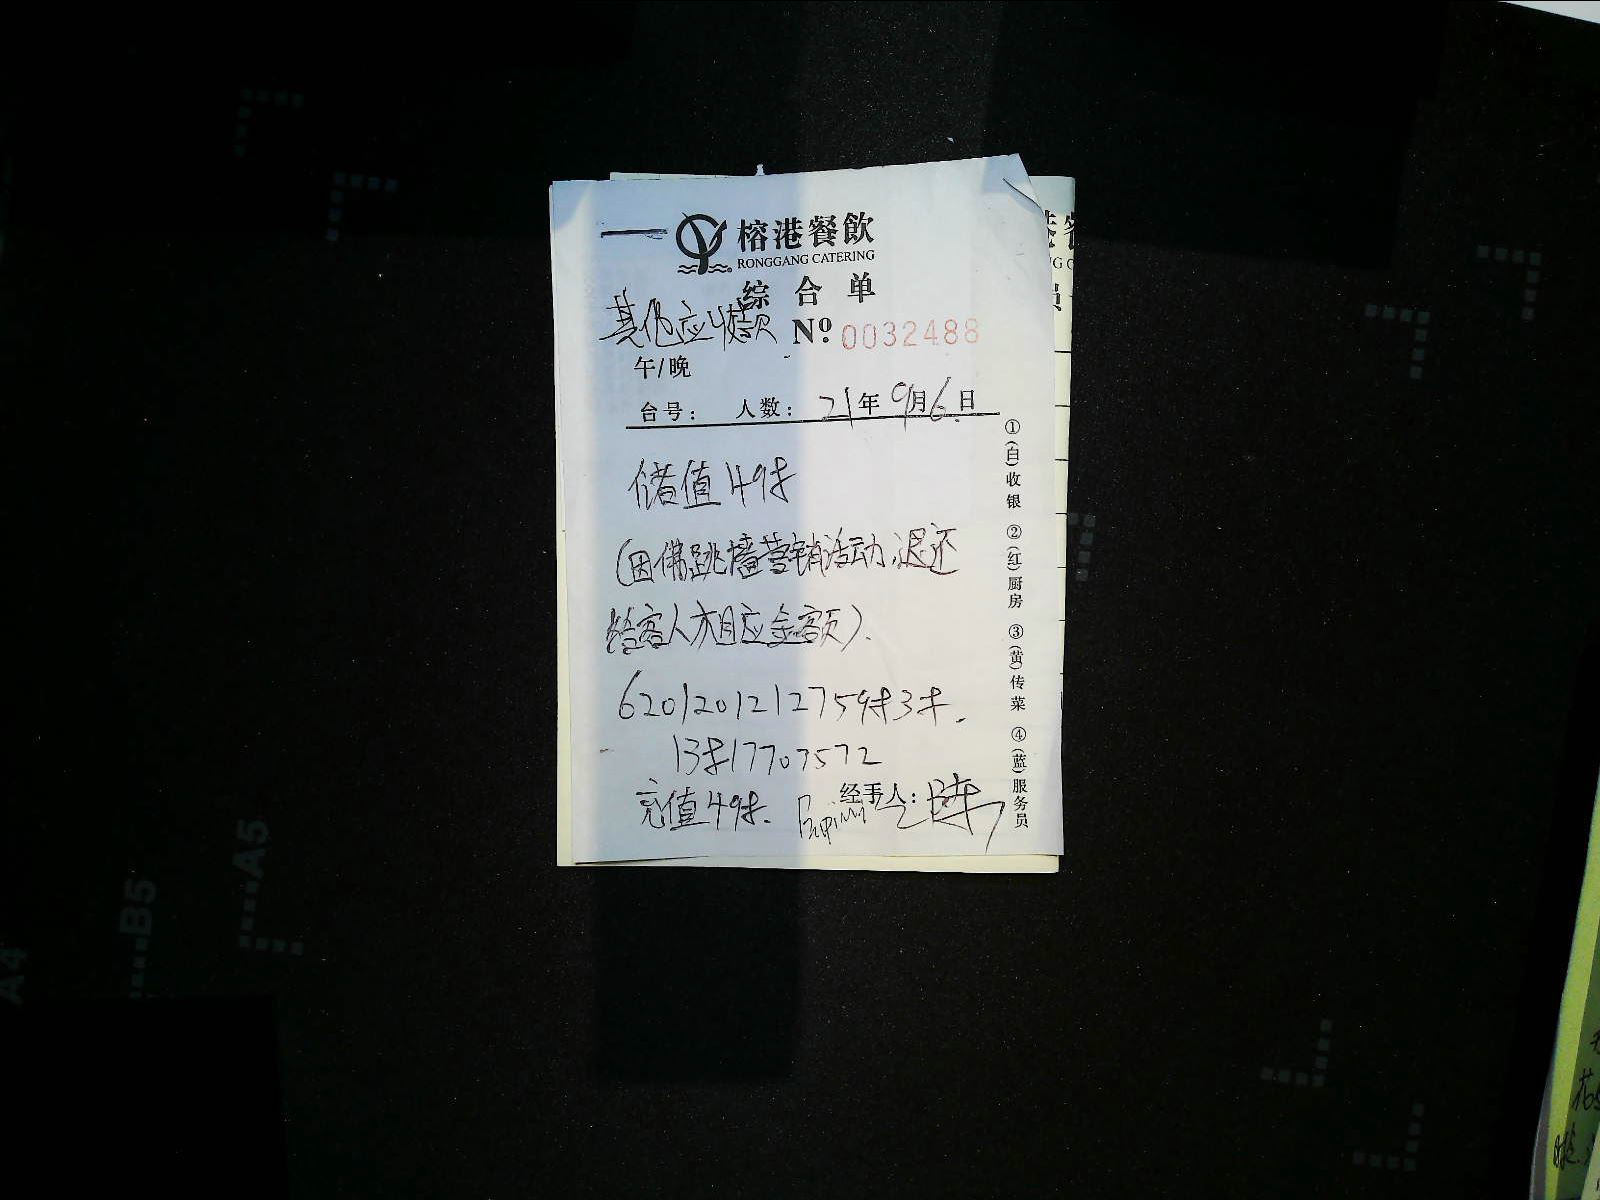 榕港餐飲
RONGGANG CATERING
综合单
其他应收款 Nº 0032488
午/晚
台号： 人数： 21年9月6日
储值498
(因佛跳墙营销活动,退还
给客人相应金额).
6201201212759838.
13817707572
充值498.
经手人： 陈
①(白)收银 ②(红)厨房 ③(黄)传菜 ④(蓝)服务员
A5
B5
A4